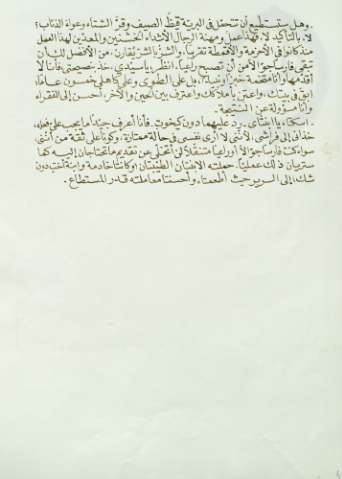 . وهل ستستطيع أن تتحمّل في البريّة قيظ الصيف وقرّ الشتاء وعواء الذئاب؟
لا، بالتأكيد لا، فهذا عمل ومهنة الرجال الأشدّاء الخشنين والمعدّين لهذا العمل
منذ كانوا في الأحزمة والأقمطة تقريباً. والشرّ بالشرّ يُقارن، من الأفضل لك أن
تبقى فارساً جوّالاً من أن تصبح راعياً. انظر يا سيّدي، خذ نصيحتي فأنا لا
أقدّمها وأنا متخمة خبزاً ونبيذاً، بل على الطوى وعلى كاهلي خمسون عاماً:
ابقَ في بيتك، واعتنِ بأملاكك، واعترف بين الحين والآخر، أحسن إلى الفقراء
وأنا مسؤولة عن النتيجة.
. اسكتا، يا ابنتاي. ردّ عليهما دون كيخوت. فأنا أعرف جيّداً ما يجب عليّ فعله.
خذاني إلى فراشي، لأنّني لا أرى نفسي في حالة ممتازة، وكونا على ثقة من أنني
سواء كنت فارساً جوّالاً أو راعياً متنقلاً لن أتخلّى عن تقديم ما تحتاجان إليه كما
ستريان ذلك عمليّاً. حملته الابنتان الطيّبتان (وكانتا خادمة وابنة أخت دون
شك)، إلى السرير حيث أطعمتاه وأحسنتا معاملته قدر المستطاع.